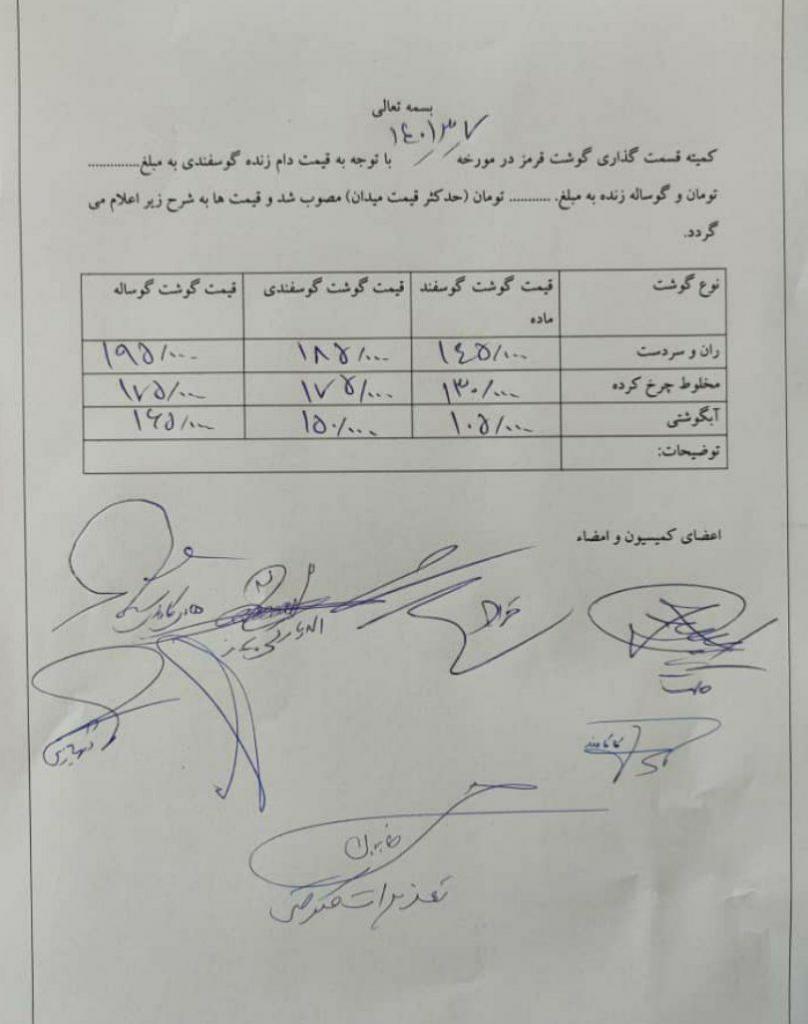 بسمه تعالی
کمیته قسمت گذاری گوشت قرمز در مورخه ۱۴۰۱/۳/۷ با توجه به قیمت دام زنده گوسفندی به مبلغ.............
تومان و گوساله زنده به مبلغ. ........... تومان (حدکثر قیمت میدان) مصوب شد و قیمت ها به شرح زیر اعلام می
گردد.
نوع گوشت قیمت گوشت گوسفند ماده قیمت گوشت گوسفندی قیمت گوشت گوساله
ران و سردست ۱۴۵/۰۰۰ ۱۸۵/۰۰۰ ۱۹۵/۰۰۰
مخلوط چرخ کرده ۱۳۰/۰۰۰ ۱۷۵/۰۰۰ ۱۷۵/۰۰۰
آبگوشتی ۱۰۵/۰۰۰ ۱۵۰/۰۰۰ ۱۶۵/۰۰۰
توضیحات:
اعضای کمیسیون و امضاء
تعزیرات حکومتی